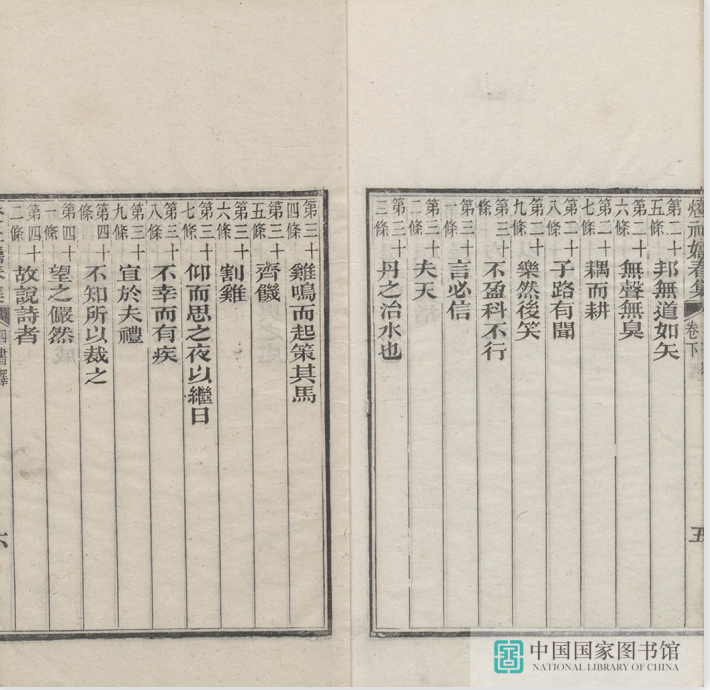 卷下
五
第二十五條 邦無道如矢
第二十六條 無聲無臭
第二十七條 耦而耕
第二十八條 子路有聞
第二十九條 樂然後笑
第三十條 不盈科不行
第三十一條 言必信
第三十二條 夫天
第三十三條 丹之治水也
第三十四條 雞鳴而起策其馬
第三十五條 齊饑
第三十六條 割雞
第三十七條 仰而思之夜以繼日
第三十八條 不幸而有疾
第三十九條 宜於夫禮
第四十條 不知所以裁之
第四十一條 望之儼然
第四十二條 故說詩者
六
中国国家图书馆
NATIONAL LIBRARY OF CHINA